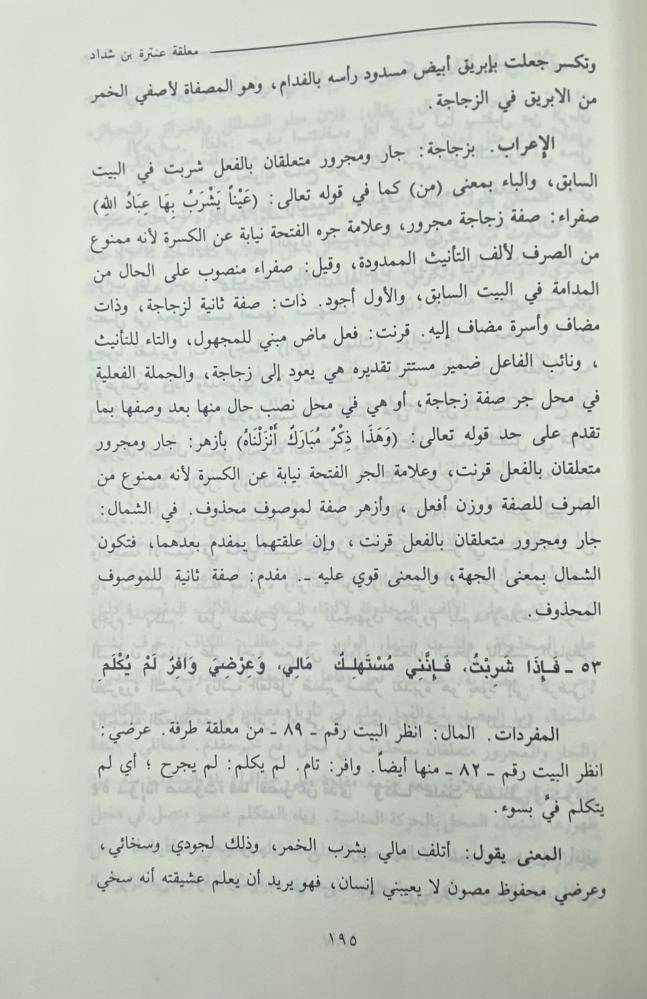 معلقة عنترة بن شداد
وتكسر جعلت بإبريق أبيض مسدود رأسه بالفدام، وهو المصفاة لأصفي الخمر
من الابريق في الزجاجة.
الإعراب. بزجاجة: جار ومجرور متعلقان بالفعل شربت في البيت
السابق، والباء بمعنى (من) كما في قوله تعالى: (عَيْناً يَشْرَبُ بِهَا عِبَادُ اللهِ)
صفراء: صفة زجاجة مجرور، وعلامة جره الفتحة نيابة عن الكسرة لأنه ممنوع
من الصرف لألف التأنيث الممدودة، وقيل: صفراء منصوب على الحال من
المدامة في البيت السابق، والأول أجود. ذات: صفة ثانية لزجاجة، وذات
مضاف وأسرة مضاف إليه. قرنت: فعل ماض مبني للمجهول، والتاء للتأنيث
، ونائب الفاعل ضمير مستتر تقديره هي يعود إلى زجاجة، والجملة الفعلية
في محل جر صفة زجاجة، أو هي في محل نصب حال منها بعد وصفها بما
تقدم على حد قوله تعالى: (وَهَذَا ذِكْرٌ مُبَارَكٌ أَنْزَلْنَاهُ) بأزهر: جار ومجرور
متعلقان بالفعل قرنت، وعلامة الجر الفتحة نيابة عن الكسرة لأنه ممنوع من
الصرف للصفة ووزن أفعل ، وأزهر صفة لموصوف محذوف. في الشمال:
جار ومجرور متعلقان بالفعل قرنت، وإن علقتهما بمفدم بعدهما، فتكون
الشمال بمعنى الجهة، والمعنى قوي عليه ـ. مفدم: صفة ثانية للموصوف
المحذوف.
٥٣ ـ فَإِذَا شَرِبْتُ، فَإِنَّنِي مُسْتَهلِكٌ مَالِي، وَعِرْضِيَ وَافِرُ لَمْ يُكْلَمِ
المفردات. المال: انظر البيت رقم ـ ٨٩ ـ من معلقة طرفة. عرضي:
انظر البيت رقم ـ ٨٢ ـ منها أيضاً. وافر: تام. لم يكلم: لم يجرح ؛ أي لم
يتكلم فيَّ بسوء.
المعنى يقول: أتلف مالي بشرب الخمر، وذلك لجودي وسخائي،
وعرضي محفوظ مصون لا يعيبني إنسان، فهو يريد أن يعلم عشيقته أنه سخي
١٩٥